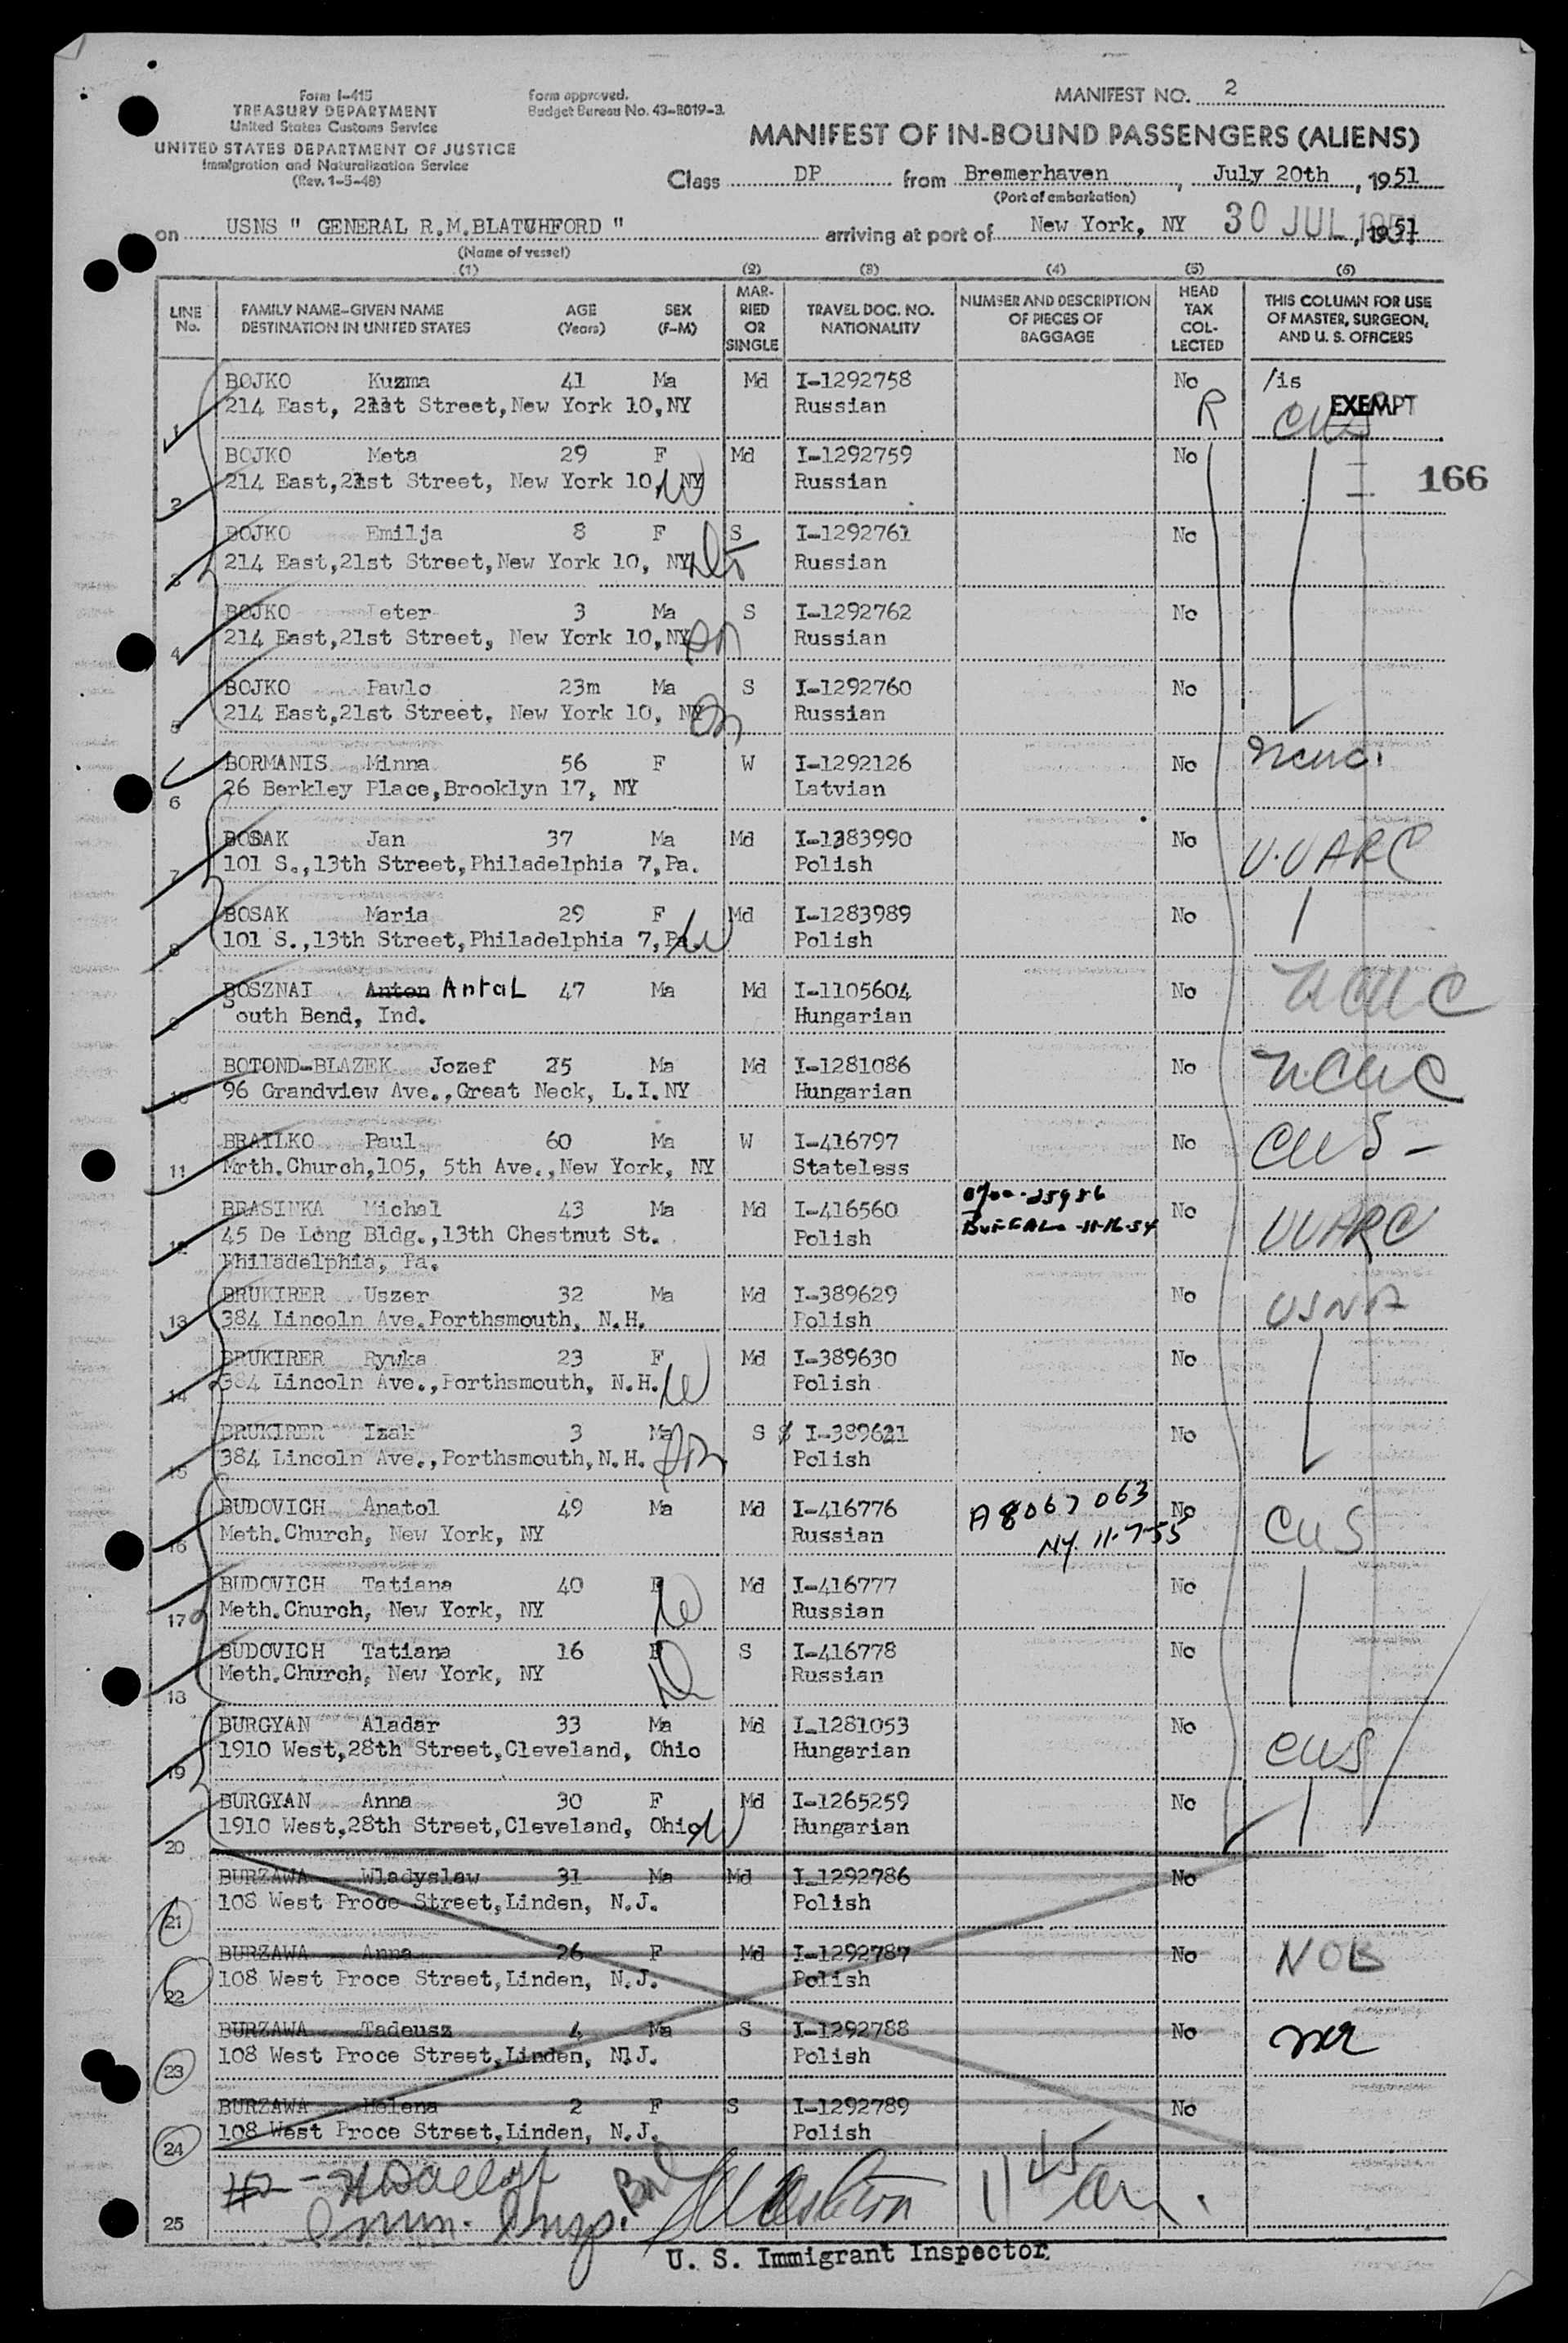 Form I-415
TREASURY DEPARTMENT
United States Customs Service
UNITED STATES DEPARTMENT OF JUSTICE
Immigration and Naturalization Service
(Rev. 1-5-48)
Form approved.
Budget Bureau No. 43-R019-3.
MANIFEST NO. 2
MANIFEST OF IN-BOUND PASSENGERS (ALIENS)
Class DP from Bremerhaven, July 20th, 1951
(Port of embarkation)
on USNS " GENERAL R.M.BLATCHFORD " arriving at port of New York, NY 30 JUL 1951, 1951
(Name of vessel)
(1) (2) (3) (4) (5) (6)
LINE No. FAMILY NAME-GIVEN NAME DESTINATION IN UNITED STATES AGE (Years) SEX (F-M) MARRIED OR SINGLE TRAVEL DOC. NO. NATIONALITY NUMBER AND DESCRIPTION OF PIECES OF BAGGAGE HEAD TAX COLLECTED THIS COLUMN FOR USE OF MASTER, SURGEON, AND U. S. OFFICERS
BOJKO Kuzma 41 Ma Md I-1292758 No /is
1 214 East, 21st Street,New York 10,NY Russian R CWS EXEMPT
BOJKO Meta 29 F Md I-1292759 No
166
2 214 East,21st Street, New York 10, NY W Russian
BOJKO Emilja 8 F S I-1292761 No
3 214 East,21st Street,New York 10, NY Russian
BOJKO Peter 3 Ma S I-1292762 No
4 214 East,21st Street, New York 10,NY Russian
BOJKO Pawlo 23m Ma S I-1292760 No
5 214 East,21st Street, New York 10, NY Russian
BORMANIS Minna 56 F W I-1292126 No NCWC.
6 26 Berkley Place,Brooklyn 17, NY Latvian
BOSAK Jan 37 Ma Md I-1283990 No U.UARC
7 101 S.,13th Street,Philadelphia 7,Pa. Polish
BOSAK Maria 29 F Md I-1283989 No
8 101 S.,13th Street,Philadelphia 7,Pa. W Polish
BOSZNAI Anton Antal 47 Ma Md I-1105604 No NCWC
9 South Bend, Ind. Hungarian
BOTOND-BLAZEK Jozef 25 Ma Md I-1281086 No NCWC
10 96 Grandview Ave.,Great Neck, L.I.NY Hungarian
BRAILKO Paul 60 Ma W I-416797 No CWS -
11 Mrth.Church,105, 5th Ave.,New York, NY Stateless
BRASINKA Michal 43 Ma Md I-416560 No UUARC
12 45 De Long Bldg.,13th Chestnut St. Polish
Philadelphia, Pa.
BRUKIRER Uszer 32 Ma Md I-389629 No USNA
13 384 Lincoln Ave.Porthsmouth, N.H. Polish
BRUKIRER Rywka 23 F Md I-389630 No
14 384 Lincoln Ave.,Porthsmouth, N.H. W Polish
BRUKIRER Izak 3 Ma S I-389621 No
15 384 Lincoln Ave.,Porthsmouth,N.H. Polish
BUDOVICH Anatol 49 Ma Md I-416776 A8067063 No CWS
16 Meth.Church, New York, NY Russian NY. 11-7-55
BUDOVICH Tatiana 40 F Md I-416777 No
17 Meth.Church, New York, NY W Russian
BUDOVICH Tatiana 16 F S I-416778 No
18 Meth.Church, New York, NY Russian
BURGYAN Aladar 33 Ma Md I_1281053 No CWS
19 1910 West,28th Street,Cleveland, Ohio Hungarian
BURGYAN Anna 30 F Md I-1265259 No
20 1910 West,28th Street,Cleveland, Ohio W Hungarian
BURZAWA Wladyslaw 31 Ma Md I_1292786 No
21 108 West Proce Street,Linden, N.J. Polish
BURZAWA Anna 26 F Md I-1292787 No NOB
22 108 West Proce Street,Linden, N.J. Polish
BURZAWA Tadeusz 4 Ma S I-1292788 No
23 108 West Proce Street,Linden, N.J. Polish
BURZAWA Helena 2 F S I-1292789 No
24 108 West Proce Street,Linden, N.J. Polish
25 Imm. Insp. 11 45
U. S. Immigrant Inspector